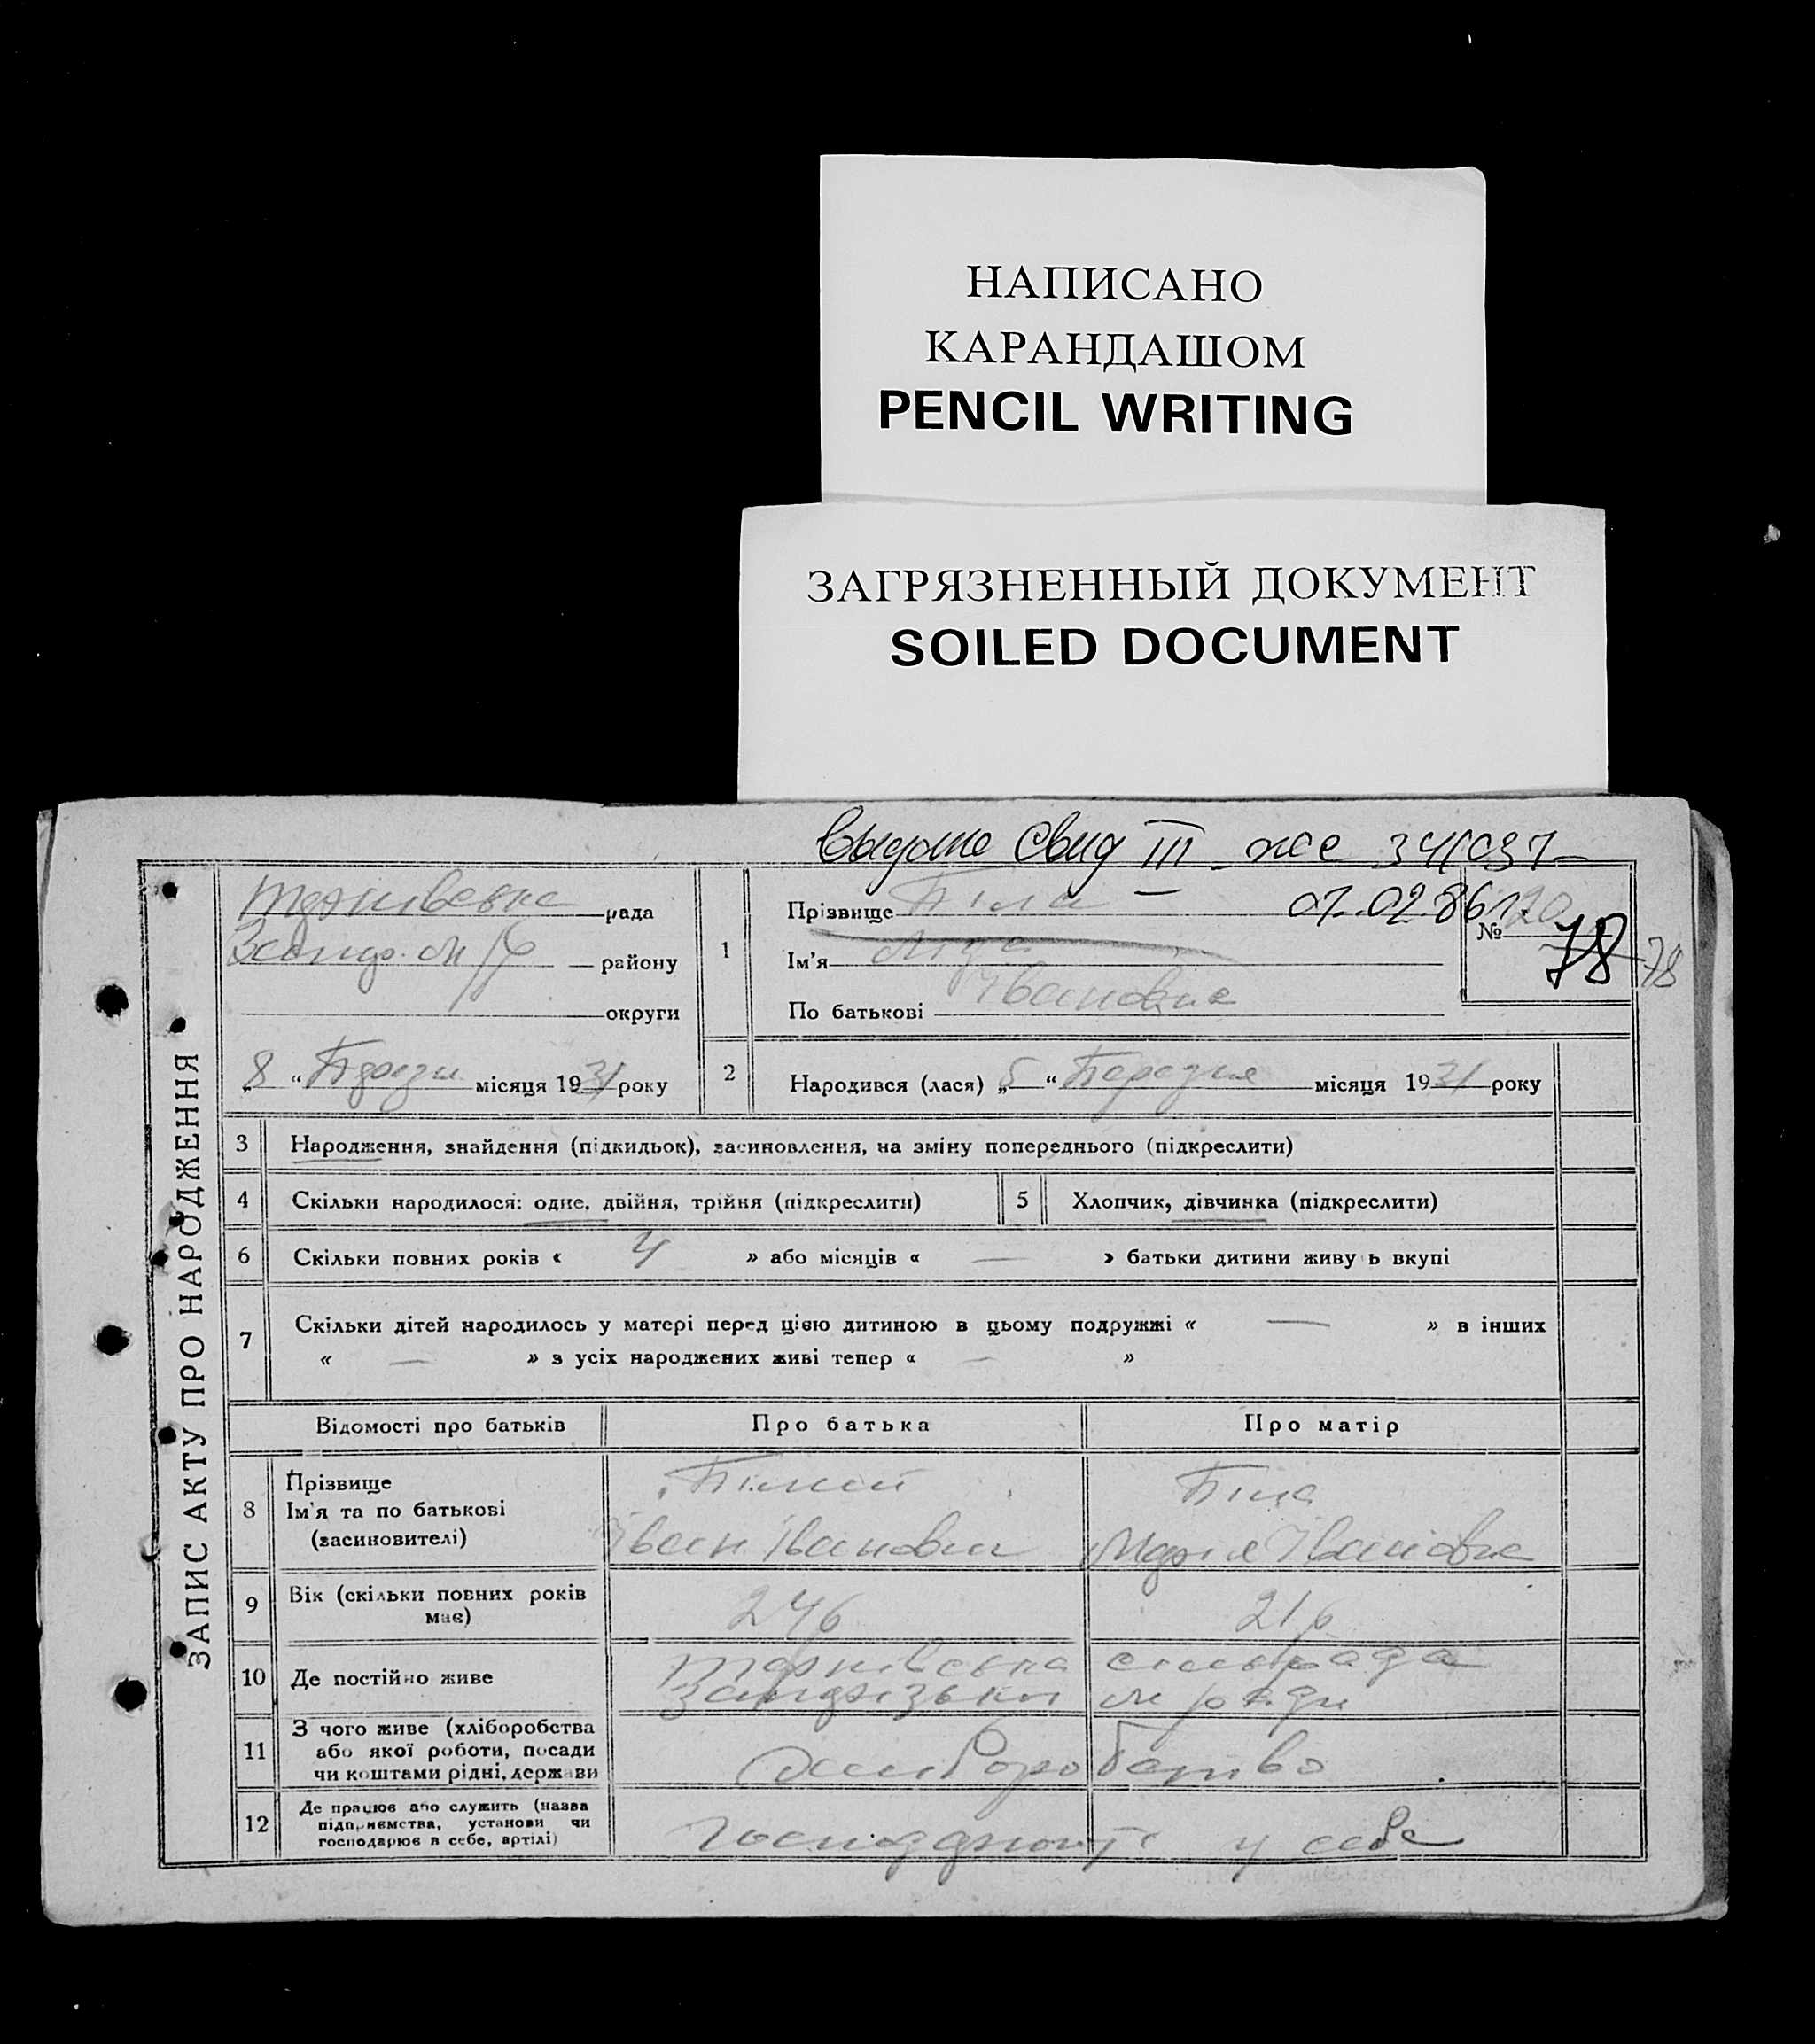 НАПИСАНО
КАРАНДАШОМ
PENCIL WRITING
ЗАГРЯЗНЕННЫЙ ДОКУМЕНТ
SOILED DOCUMENT
III 341037
07.02.86
ЗАПИС АКТУ ПРО НАРОДЖЕННЯ
рада
району
округи
8 " місяця 1931 року
1
Прізвище Біла
Ім'я
По батькові Івановна
№
78
78
2
Народився (лася) „5" Березня місяця 1931 року
3 Народження, знайдення (підкидьок), засиновлення, на зміну попереднього (підкреслити)
4 Скільки народилося: одне, двійня, трійня (підкреслити)
5 Хлопчик, дівчинка (підкреслити)
6 Скільки повних років « 4 » або місяців « — » батьки дитини живу ь вкупі
7 Скільки дітей народилось у матері перед цією дитиною в цьому подружжі « — » в інших
« — » з усіх народжених живі тепер « — »
Відомості про батьків Про батька Про матір
8 Прізвище
Ім'я та по батькові
(засиновителі)
Білий
Іван Іванович
Біла
Марія Івановна
9 Вік (скільки повних років
має)
24р
21р
10 Де постійно живе
сільрада
11 З чого живе (хліборобства
або якої роботи, посади
чи коштами рідні, держави
хліборобство
12 Де працює або служить (назва
підприємства, установи чи
господарює в себе, артілі)
у себе